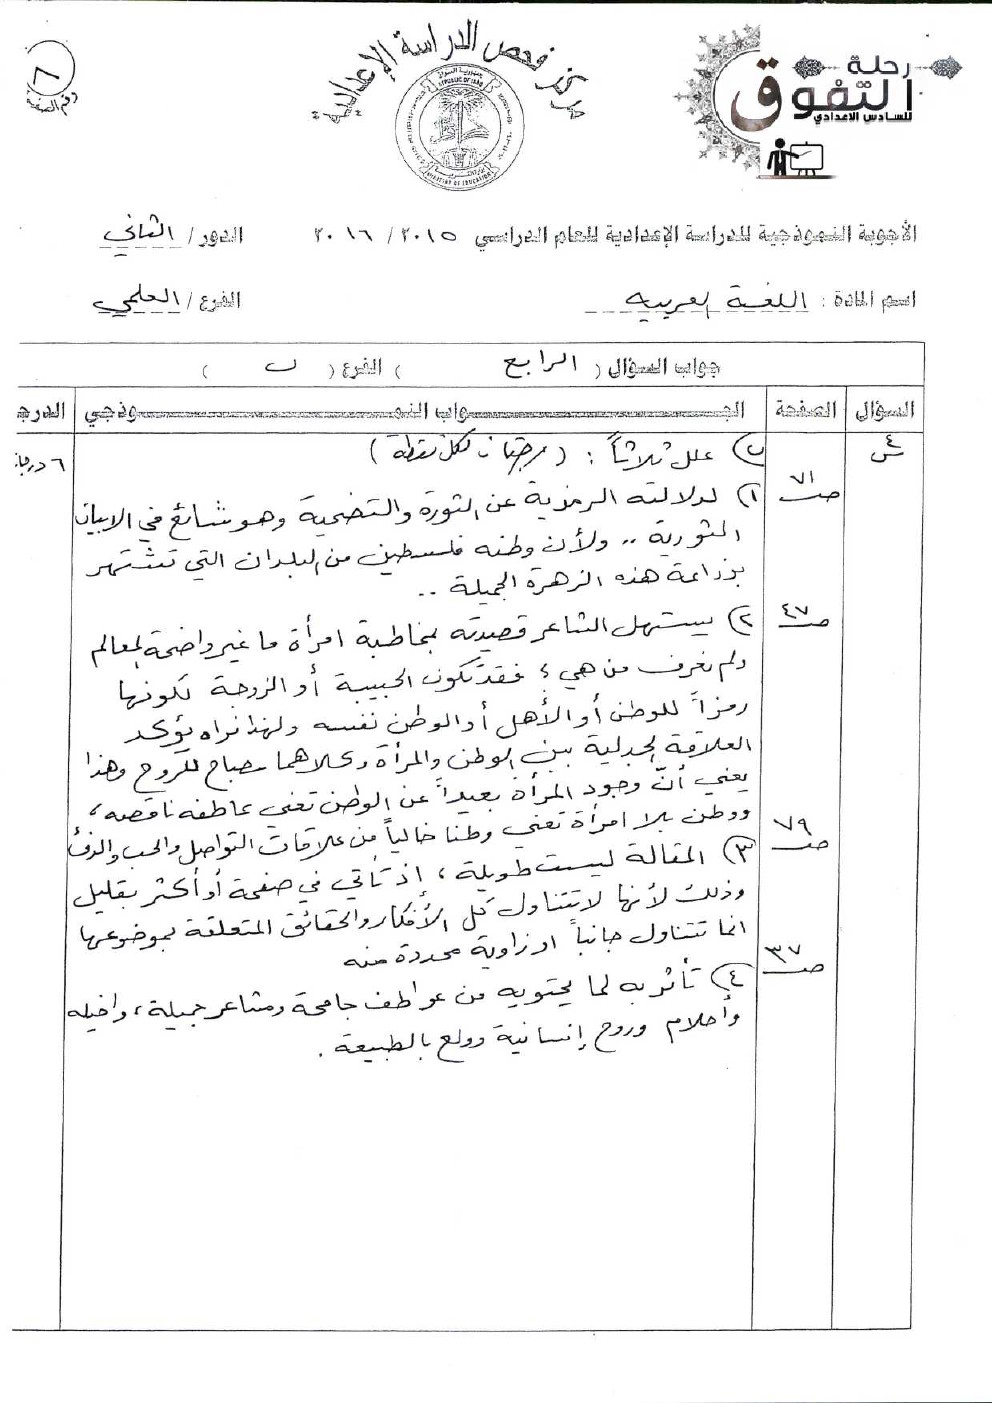 رقم الصفحة
٦
مركز فحص الدراسة الإعدادية
رحلة
التفوق
للسادس الاعدادي
REPUBLIC OF IRAQ
MINISTRY OF EDUCATION
الأجوبة النموذجية للدراسة الإعدادية للعام الدراسي ٢٠١٥ / ٢٠١٦ الدور / الثاني
اسم المادة : اللغة العربية الفرع / العلمي
جواب السؤال ( الرابع ) الفرع ( ب )
السؤال الصفحة الجـــواب النمـــوذجي الدرجـ
س٤ ب) علل ثلاثاً : ( درجتان لكل نقطة ) ٦ درجات
ص٧١ ١) لدلالته الرمزية عن الثورة والتضحية وهو شائع في الابيات
الثورية .. ولأن وطنه فلسطين من البلدان التي تشتهر
بزراعة هذه الزهرة الجميلة ..
ص٤٧ ٢) يستهل الشاعر قصيدته بمخاطبة امرأة ما غير واضحة المعالم
ولم نعرف من هي ؟ فقد تكون الحبيبة أو الزوجة لكونها
رمزاً للوطن أو الأهل أو الوطن نفسه ولهذا نراه يؤكد
العلاقة الجدلية بين الوطن والمرأة وكلاهما مصباح للروح وهذا
يعني أنّ وجود المرأة بعيداً عن الوطن تعني عاطفه ناقصه ،
ووطن بلا امرأة تعني وطنا خالياً من علاقات التواصل والحب والدفأ
ص٧٩ ٣) المقالة ليست طويلة ، إذ تأتي في صفحة أو أكثر بقليل
وذلك لأنها لا تتناول كل الأفكار والحقائق المتعلقة بموضوعها
انما تتناول جانباً او زاوية محددة منه
ص٣٧ ٤) تأثر به لما يحتويه من عواطف جامحة ومشاعر جميلة ، واخيله
وأحلام وروح إنسانية وولع بالطبيعة .